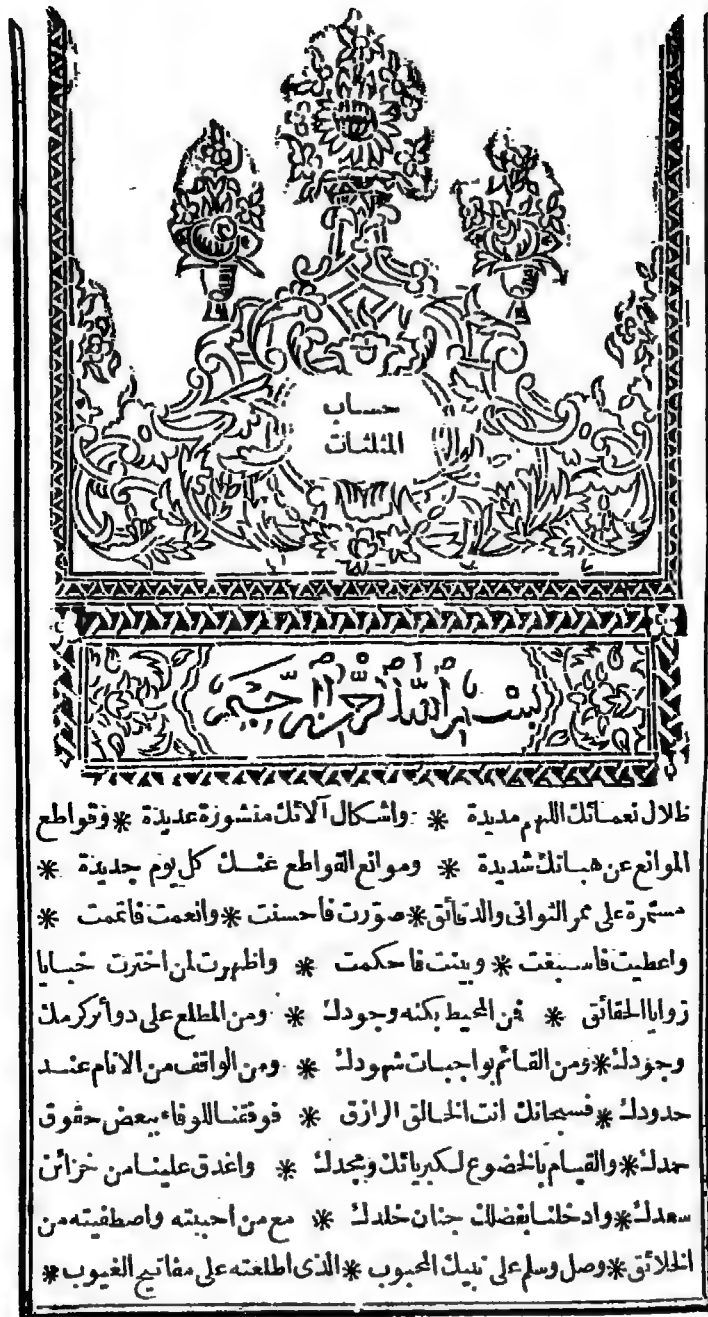 حساب
المثلثات
بسم الله الرحمن الرحيم
ظلال نعمائك اللهم مديدة * واشكال آلائك منشورة عديدة * وقواطع
الموانع عن هباتك شديدة * وموانع القواطع عنك كل يوم جديدة *
مستمرة على ممر الثوانى والدقائق * صورت فاحسنت * وانعمت فاتممت *
واعطيت فاسبغت * وبينت فاحكمت * واظهرت لمن اخترت خبايا
زوايا الحقائق * فن المحيط بكنه وجودك * ومن المطلع على دوائر كرمك
وجودك * ومن القائم بواجبات شهودك * ومن الواقف من الانام عند
حدودك * فسبحانك انت الخالق الرازق * فوفقنا للوفاء ببعض حقوق
حمدك * والقيام بالخضوع لكبريائك ومجدك * واغدق علينا من خزائن
سعدك * وادخلنا بفضلك جنان خلدك * مع من احببته واصطفيته من
الخلائق * وصل وسلم على نبيك المحبوب * الذى اطلعته على مفاتيح الغيوب *